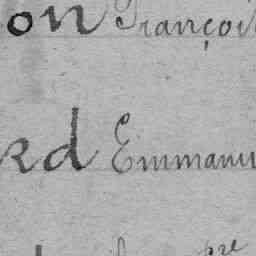 on Françoi
rd Emmanu